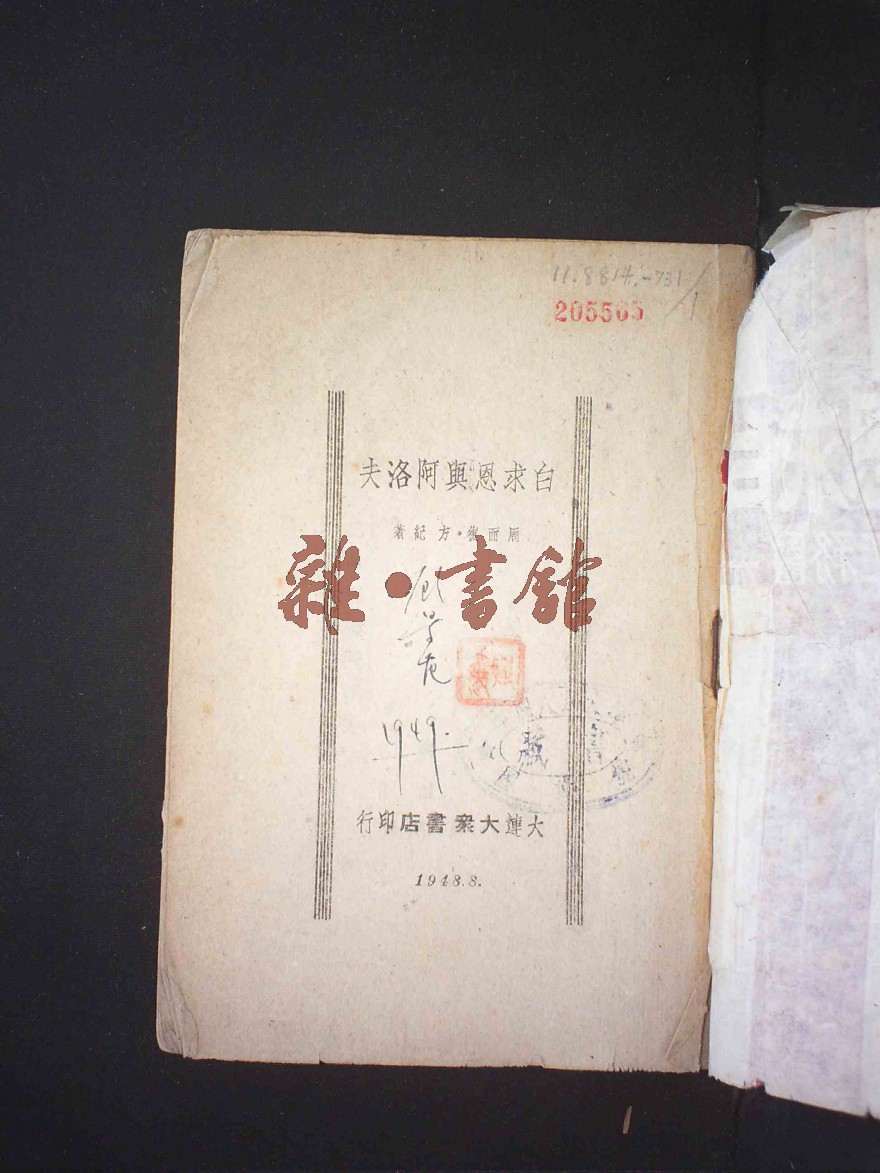 11.8814.-731/1
205565
夫洛阿與恩求白
著紀方・復而周
雜・書館
1949.
行印店書衆大連大
1948.8.